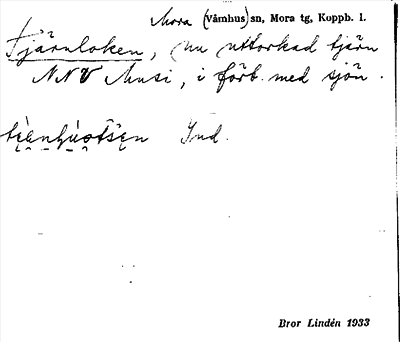 Mora (Våmhus) sn, Mora tg, Koppb. l.
Tjärnloken, nu uttorkad tjärn
NNV Musi, i förb. med sjön.
Ind.
Bror Lindén 1933